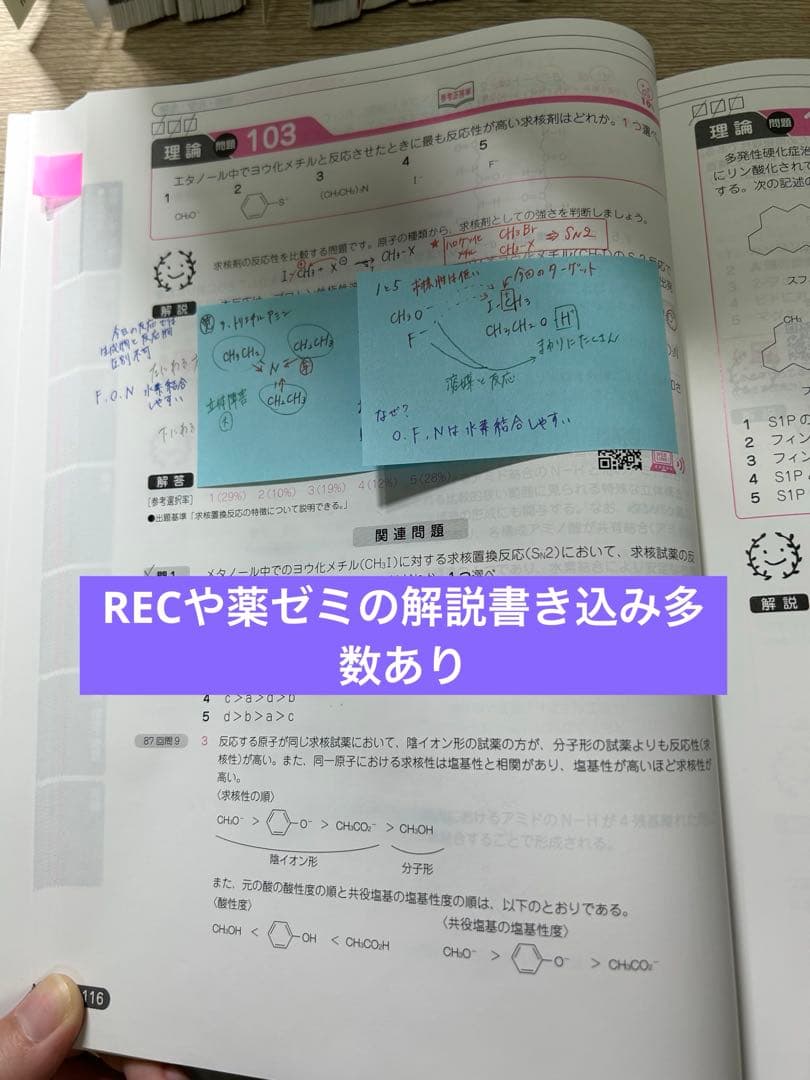 参考正答率
理論 問題 103
エタノール中でヨウ化メチルと反応させたときに最も反応性が高い求核剤はどれか。1つ選べ
1 2 3 4 5
CH₃O⁻ S⁻ (CH₃CH₂)₃N I⁻ F⁻
求核剤の反応性を比較する問題です。原子の種類から、求核剤としての強さを判断しましょう。
CH₃Br
CH₃-X ⇒ SN2
I CH₃ + X → CH₃-X
解説
今日の反応では
生成物と反応物
区別不可
F、O、N 水素結合
しやすい
3、トリエチルアミン
CH₃CH₂ CH₂CH₃
N
CH₂CH₃
立体障害
大
1と5 求核性は低い
今回のターゲット
CH₃O⁻ I-CH₃
F⁻ CH₃CH₂O H
まわりにたくさん
溶媒と反応
なぜ?
O、F、Nは水素結合しやすい
解答
[参考選択率] 1(29%) 2(10%) 3(19%) 4(12%) 5(28%)
●出題基準「求核置換反応の特徴について説明できる。」
関連問題
問1 メタノール中でのヨウ化メチル(CH₃I)に対する求核置換反応(SN2)において、求核試薬の反
RECや薬ゼミの解説書き込み多
数あり
4 c>a>d>b
5 d>b>a>c
87回問9 3 反応する原子が同じ求核試薬において、陰イオン形の試薬の方が、分子形の試薬よりも反応性(求
核性)が高い。また、同一原子における求核性は塩基性と相関があり、塩基性が高いほど求核性が
高い。
〈求核性の順〉
CH₃O⁻ > O⁻ > CH₃CO₂⁻ > CH₃OH
陰イオン形 分子形
また、元の酸の酸性度の順と共役塩基の塩基性度の順は、以下のとおりである。
〈酸性度〉 〈共役塩基の塩基性度〉
CH₃OH < OH < CH₃CO₂H CH₃O⁻ > O⁻ > CH₃CO₂⁻
116
理論 問題
多発性硬化症治
にリン酸化されて
する。次の記述の
CH₃
1 S1Pの
2 フィン
3 フィン
4 S1P
5 S1P
解説